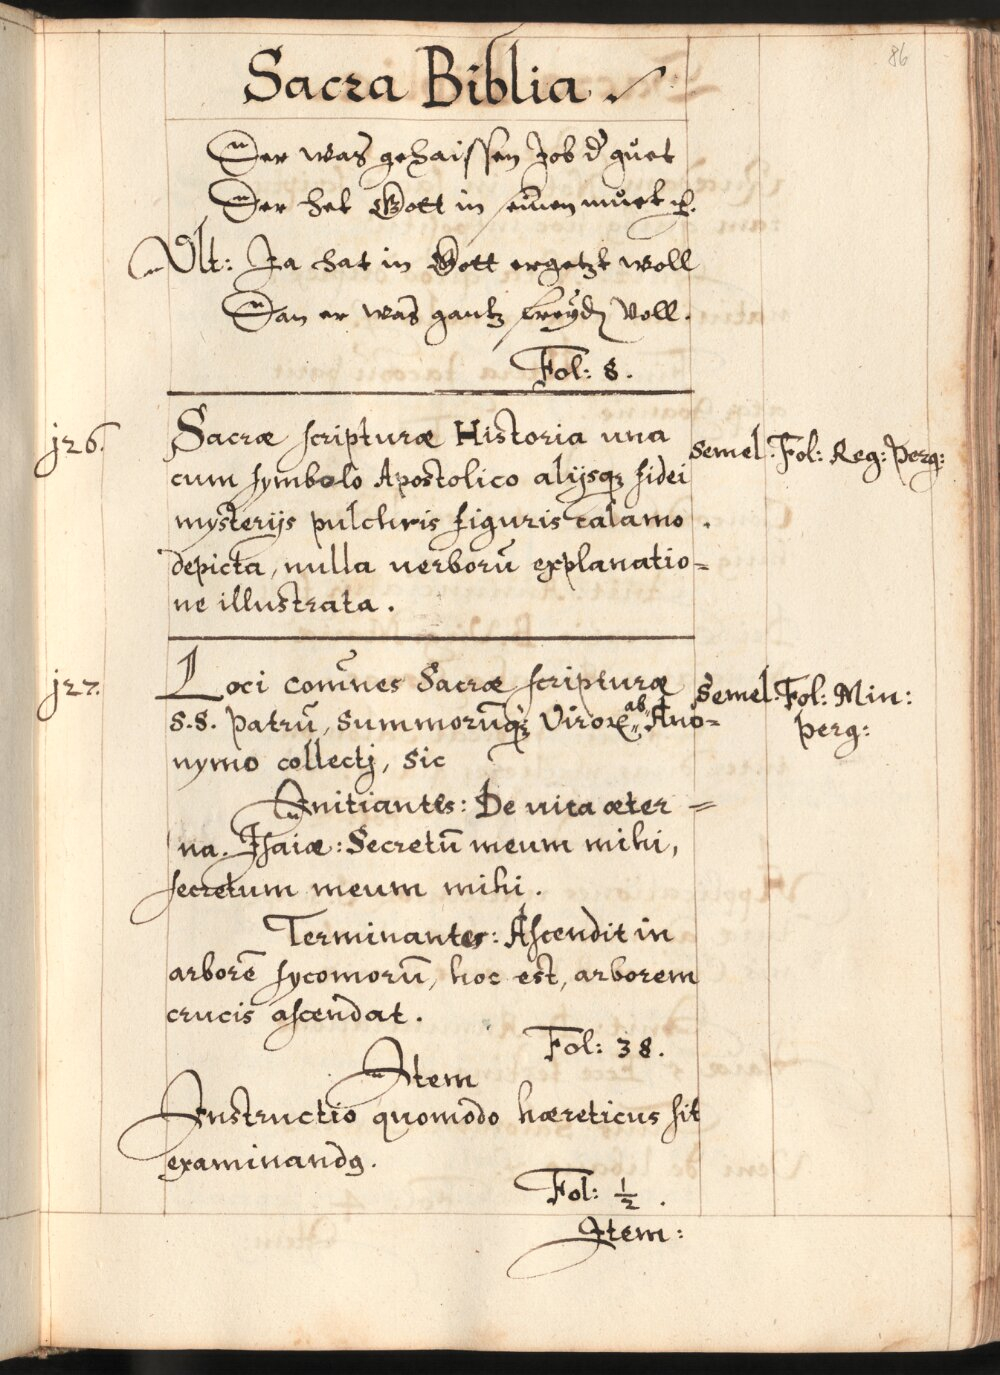 86
Sacra Biblia
Der was gehaissen Job d' guet
Der het Gott in seinem muet
Ult: Ja hat in Gott ergetzt woll
Dan er was gantz Voll.
Fol: 8.
126. Sacræ scripturæ Historia una semel. Fol: Reg: Perg:
cum symbolo Apostolico alijsq; fidei
mysterijs pulchris figuris calamo
depicta, nulla uerborū explanatio=
ne illustrata.
127. Loci com̄unes Sacræ scripturæ semel. Fol: Min:
S.S. Patrū, Summorūq; Viroꝝ ab Ano= Perg:
nymo collecti, sic
Initiantes: De uita æter=
na. Isaiæ: Secretū meum mihi,
secretum meum mihi.
Terminantes: Ascendit in
arborē sycomorū, hoc est, arborem
crucis ascendat.
Fol: 38.
Item
Instructio quomodo hæreticus sit
examinandꝰ.
Fol: ½.
Item: